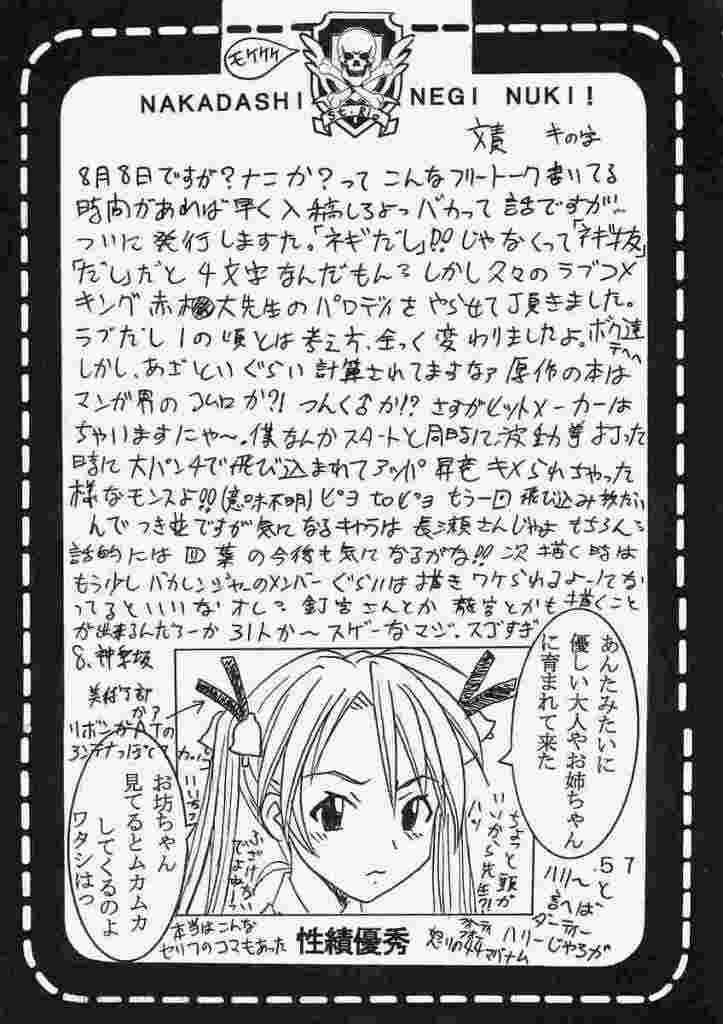 モケケケ
NAKADASHI NEGI NUKI!
ST.RIO
文責 キの字
8月8日ですが?ナニか?って こんなフリートーク書いてる
時間があれば早く入稿しろよっバカって話ですが〜
ついに発行しますた。「ネギだし」!!じゃなくって「ネギ抜」
「だし」だと4文字なんだもん? しかし久々のラブコメ
キング赤松大先生のパロディをやらせて頂きました。
ラブだし1の頃とは考え方、全っく変わりましたよ。ボク達
しかし、あざといぐらい計算されてますなァ 原作の本は
マンガ界のコムロか?!つんく♂か!? さすがヒットメーカーは
ちゃいますにゃ〜。僕なんかスタートと同時に波動拳打った
時に大パンチで飛び込まれてアッパ昇竜キメられちゃった
様なモンスよ!!(意味不明)ピヨtoピヨもう一回飛び込み
んでつき並ですが気になるキャラは長瀬さんじゃよ もちろん
話的には四葉の今後も気になるがな!!次描く時は
もう少しバカレンジャーのメンバーぐらいは描きワケられるよーにな
ってるといいなオレ 釘宮さんとか 龍宮とかも描くこと
が出来るんだろーか 31人か〜スゲーなマジ、スゴすぎ
8.神楽坂
美術部
か?
リボンが
あんたみたいに
優しい大人やお姉ちゃん
に育まれて来た
お坊ちゃん
見てるとムカムカ
してくるのよ
ワタシはっ
ちょっと頭が
いいから先生?!
ハン
いいち
ふざけかい
でよねーっ
57
と
ハリー
言へば
ダーティー
ハリー
じゃろが
本当はこんな
セリフのコマもあった
性績優秀
フォーティ
フォー
怒りの44
マグナム